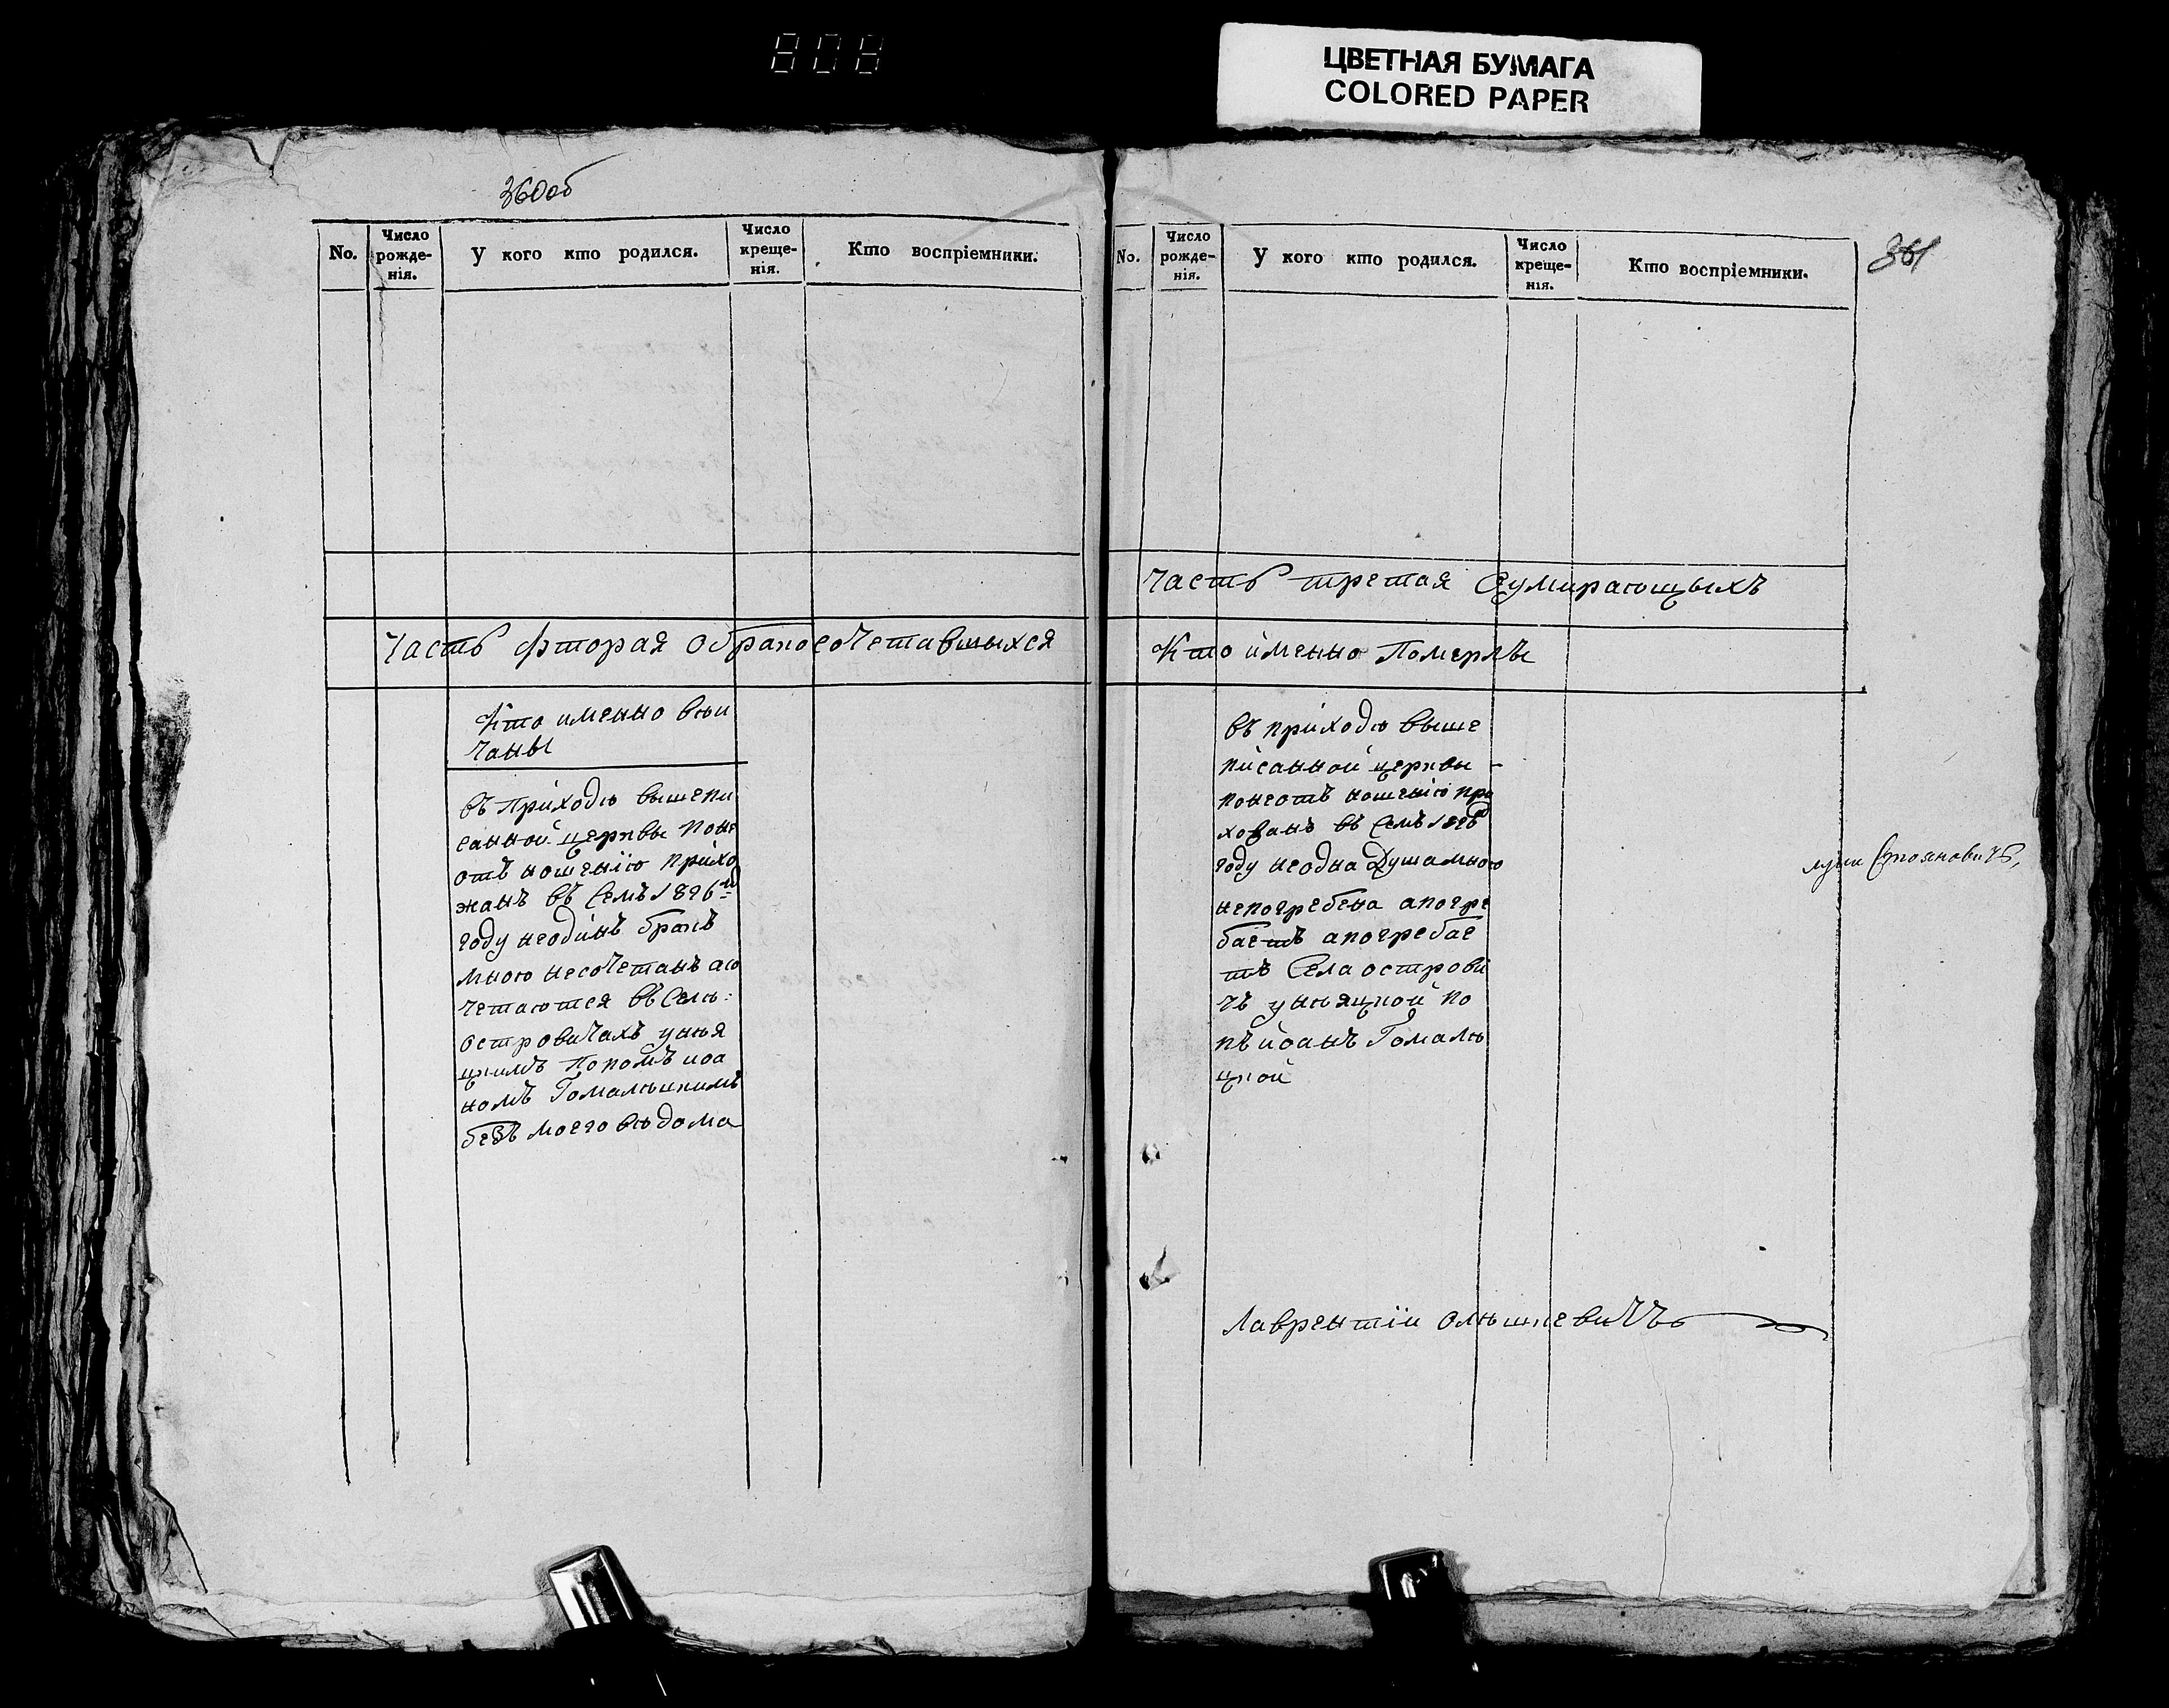 808
ЦВЕТНАЯ БУМАГА
COLORED PAPER
360об
No.
Число рожде-нія.
У кого кто родился.
Число креще-нія.
Кто воспріемники.
Часть фторая обракосочетавшыхся
Кто именно вѣн
чаны
въ приходѣ вышепи
санной церквы поне
отъ ношенію прихо
жанъ въ семъ 1826м
году неодинъ бракъ
мною несочетанъ асо
четаются въ селѣ:
островичахъ унѣя
цкимъ попомъ иоа
номъ Гомалѣцкимъ
безъ моего вѣдома
361
No.
Число рожде-нія.
У кого кто родился.
Число креще-нія.
Кто воспріемники.
Часть третая оумирающыхъ
Кто именно Померлъ
въ приходѣ выше
писанной церквы -
понеотъ ношенію при
хожанъ въ семъ 1826
году неодна душа мною
непогребена апогре
баетъ апогребае
тъ села острови
чъ унѣяцкой по
пъ иоанъ Гомалѣ
цкой
Стояновичъ,
Лаврентіи олѣшкевичъ